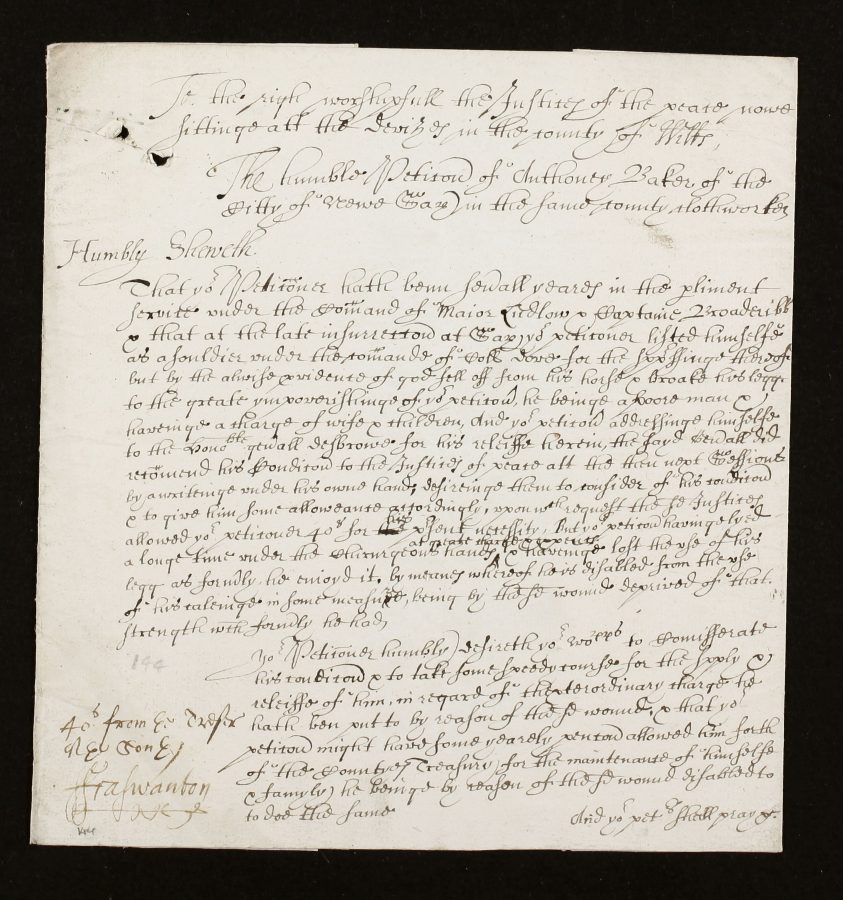 To the right worshipfull the Justices of the peace nowe
sittinge att the Devizes in the county of Wiltes,
The humble Peticon of Anthoney Baker of the
Citty of Newe Sar) in the same county clothworker
Humbly Sheweth
That yor Peticoner hath benn sevrall yeares in the pliment
service under the Comand of Major Ludlow & Captaine Broadribb
& that at the late insurrecon at Sar) yor peticoner listed himselfe
as a souldier under the comande of Coll Dove for the suppssinge thereof
but by the alwise pvidence of god fell off from his horse & broake his legg
to the greate impoverishinge of yor peticon, he beinge a poore man &
haveinge a charge of wife & children, And yor peticon addressinge himselfe
to the honoble genrall desbrowe for his releiffe herein, the sayd Genrall did
recomend his Condicon to the Justices of peace att the then next Sessions
by a writeinge under his owne hand, desireinge them to consider of his condicon
& to give him some alloweance accordingly, upon wch request the sd Justices
allowed yor peticoner 40s for his psent necessity, But yor peticon haveinge lyed
at greate charge & expences
a longe time under the Chirurgeons hands, & haveinge lost the use of his
legg as formrly he enioyd it, by meanes whereof he is disabled from the use
of his caleinge in some measure, being by the sd wound deprived of that
strength wch formrly he had,
yor Peticoner humbly desireth yor worpps to Comisserate
his condicon & to take some speedy course for the supply &
releiffe of him, in regard of the exterordinary charge he
hath ben put to by reason of the sd wound, & that yor
peticon might have some yearely pencon allowed him forth
of the Countyes Treasury for the maintenance of himselfe
& famyly he beinge by reason of the sd wound disabled to
to doe the same
And yor petr shall pray &c.
144
40s from the Tresr
Fra Swanton
144